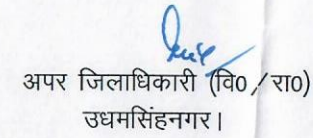 अपर जिलाधिकारी (वि0/रा0)
उधमसिंहनगर।